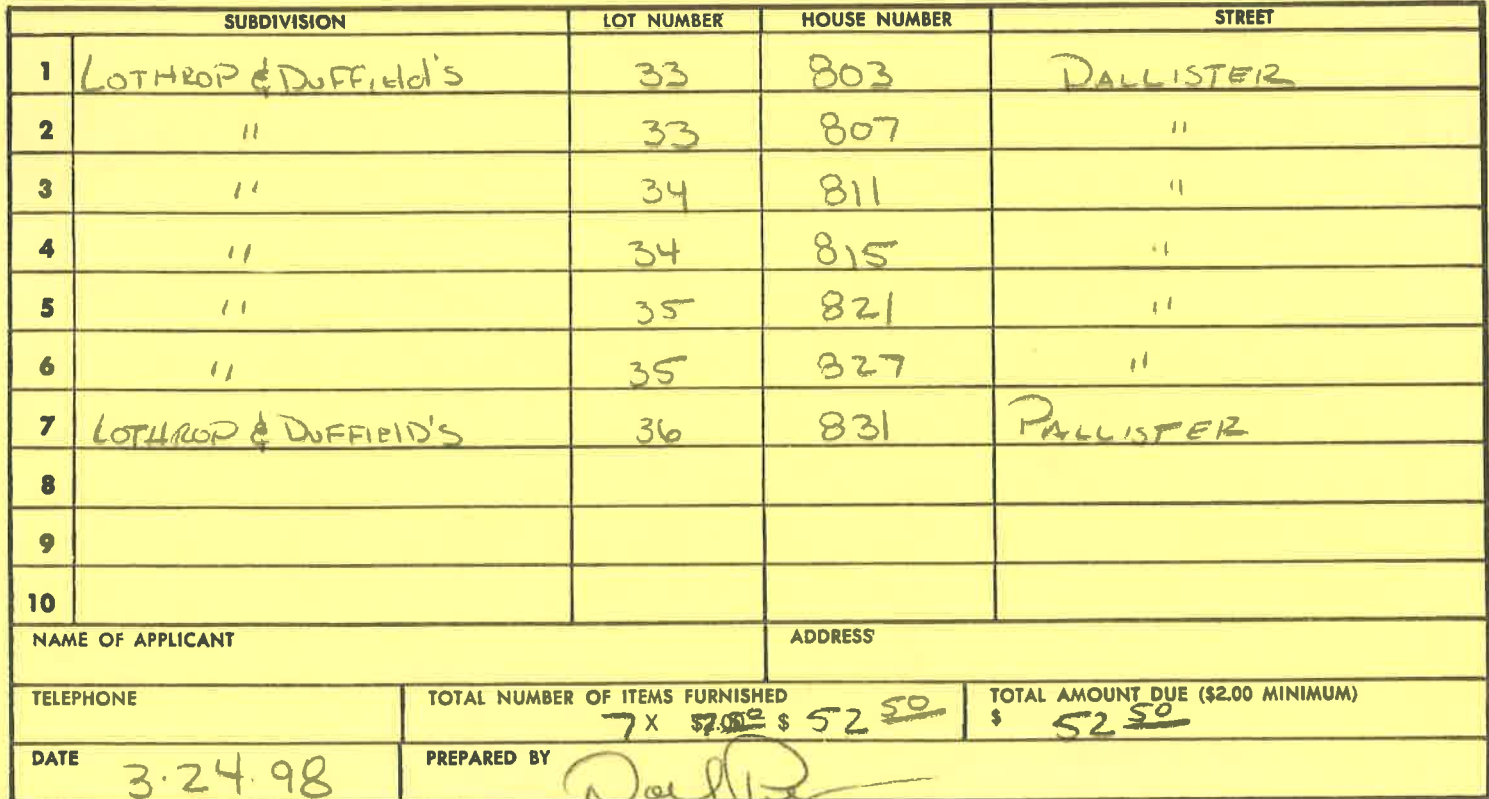 SUBDIVISION LOT NUMBER HOUSE NUMBER STREET
1 LOTHROP & DUFFIEld's 33 803 PALLISTER
2 " 33 807 "
3 " 34 811 "
4 " 34 815 "
5 " 35 821 "
6 " 35 827 "
7 LOTHROP & DUFFIElD'S 36 831 PALLISTER
8
9
10
NAME OF APPLICANT ADDRESS
TELEPHONE TOTAL NUMBER OF ITEMS FURNISHED TOTAL AMOUNT DUE ($2.00 MINIMUM)
7 X $ 52 50 $ 52 50
DATE 3.24.98 PREPARED BY